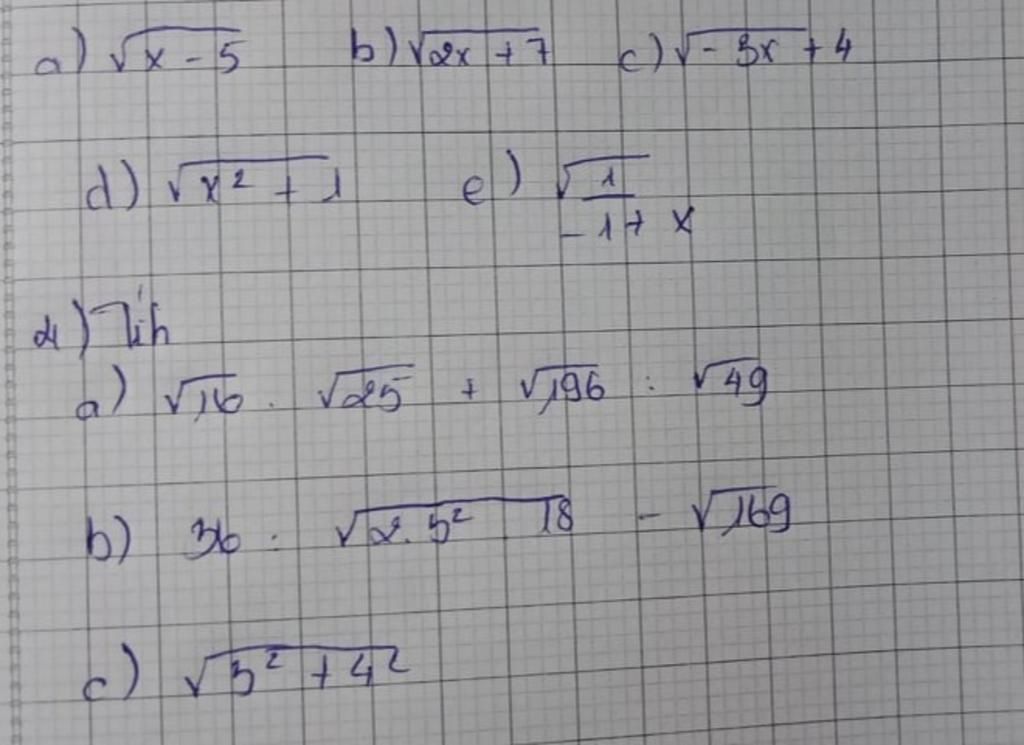 a) √(x - 5) b) √(2x + 7) c) √(-3x + 4)
d) √(x² + 1) e) √(1/(-1 + x))
2) Tíh
a) √16 . √25 + √196 : √49
b) 36 : √(2.3² 18) - √169
c) √(3² + 4²)